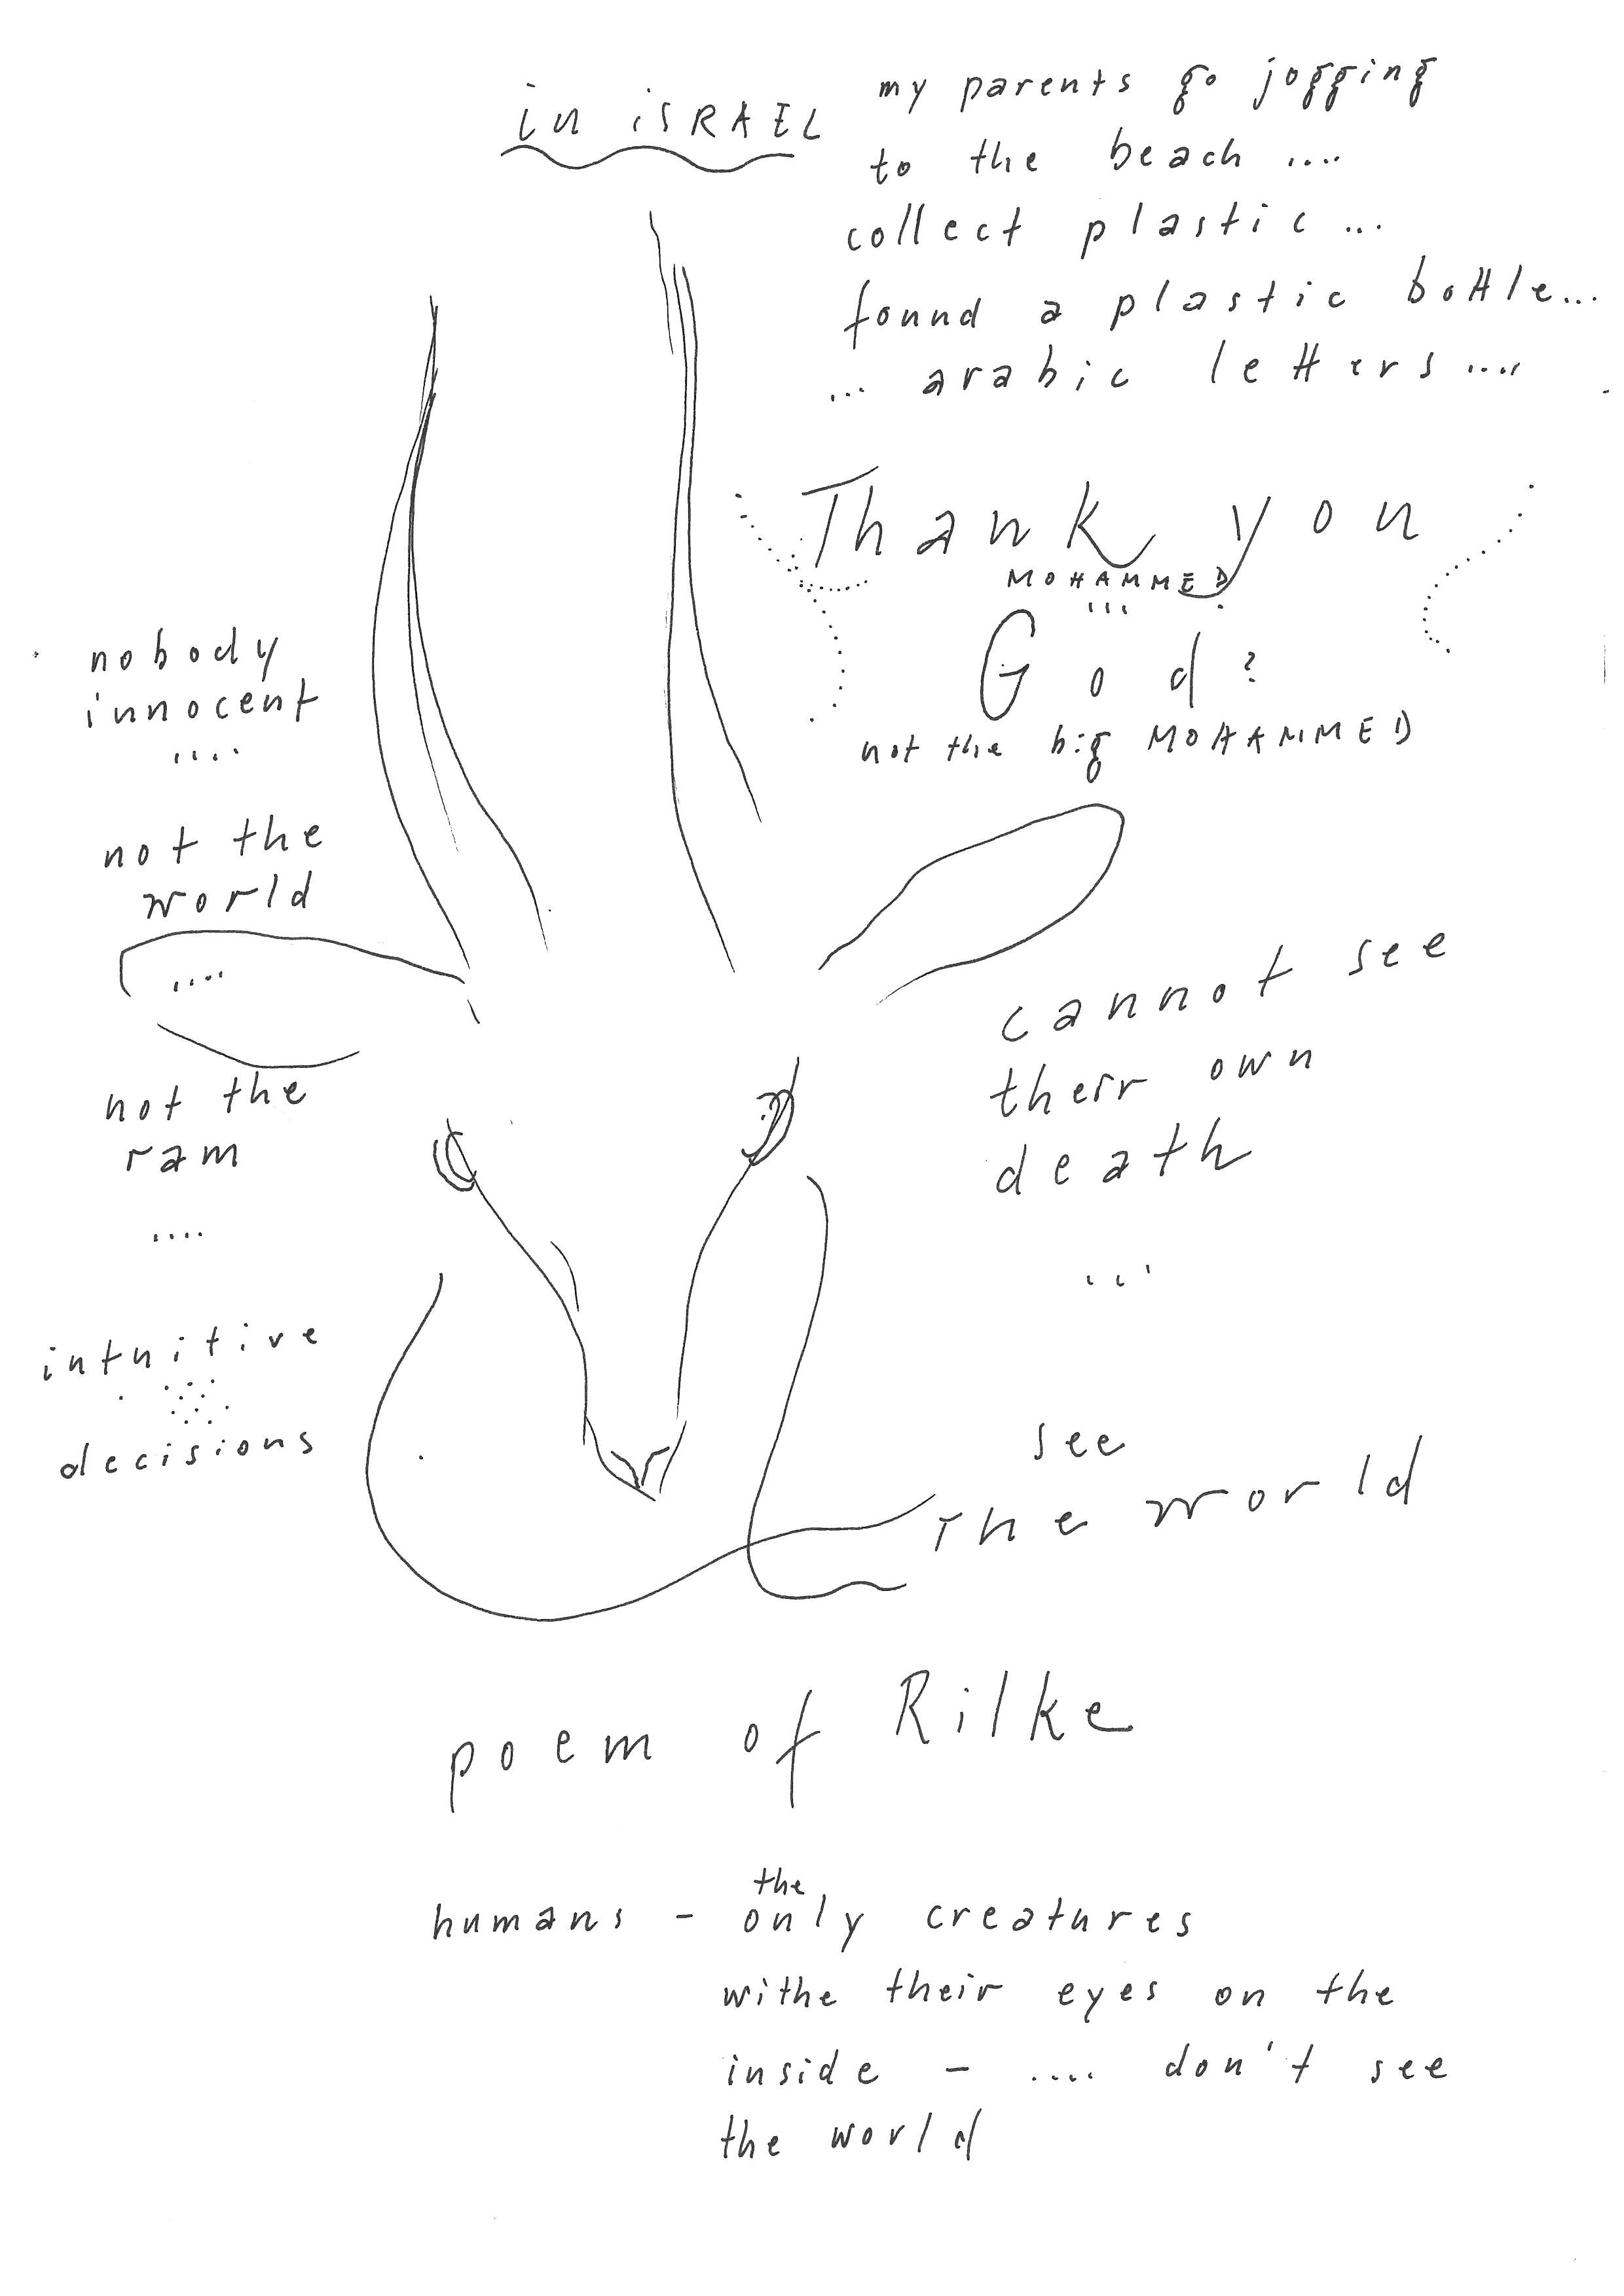 in iSRAEL
my parents go jogging
to the beach ....
collect plastic ...
found a plastic bottle...
... arabic letters ....
Thank you
MOHAMMED
...
God?
not the big MOHAMMED
nobody
innocent
....
not the
world
....
not the
ram
....
intuitive
decisions
cannot see
their own
death
...
see
The world
poem of Rilke
the
humans - only creatures
withe their eyes on the
inside - .... don't see
the world